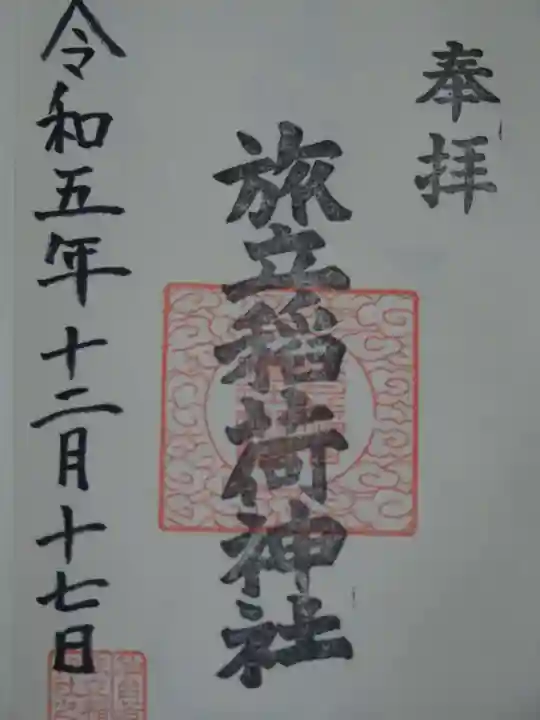 奉拝
旅立稲荷神社
令和五年十二月十七日